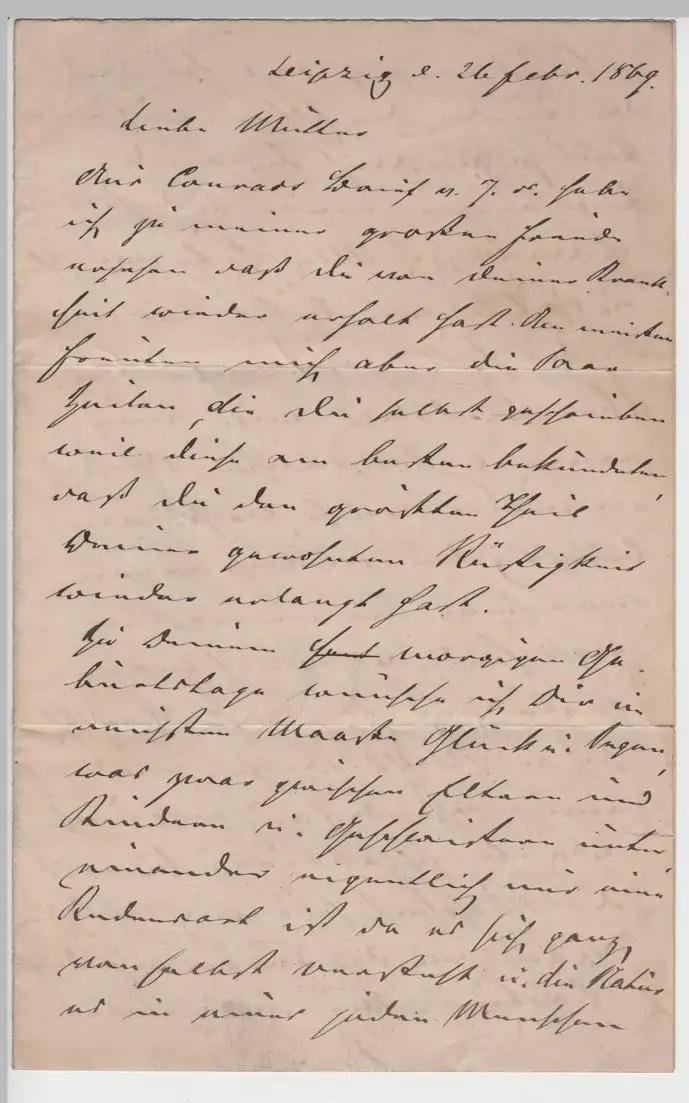 Leipzig d. 26 febr. 1869.
Liebe Mutter
Aus Conrads Brief v. 7. d. habe
ich zu meiner großen Freude
ersehen daß Du von Deiner Krank-
heit wieder erholt hast. Am meisten
freuten mich aber die Paar
Zeilen, die Du selbst geschrieben
weil diese am besten bekundeten,
daß Du den größten Theil
Deiner gewohnten Rüstigkeit
wieder erlangt hast.
Zu Deinem morgigen Ge-
burtstage wünsche ich Dir in
reichstem Maaße Glück u. Segen,
was zwar zwischen Eltern und
Kindern u. Geschwistern unter
einander eigentlich nur eine
Redensart ist da es sich ganz
von selbst versteht u. die Natur
es in eines jeden Menschen